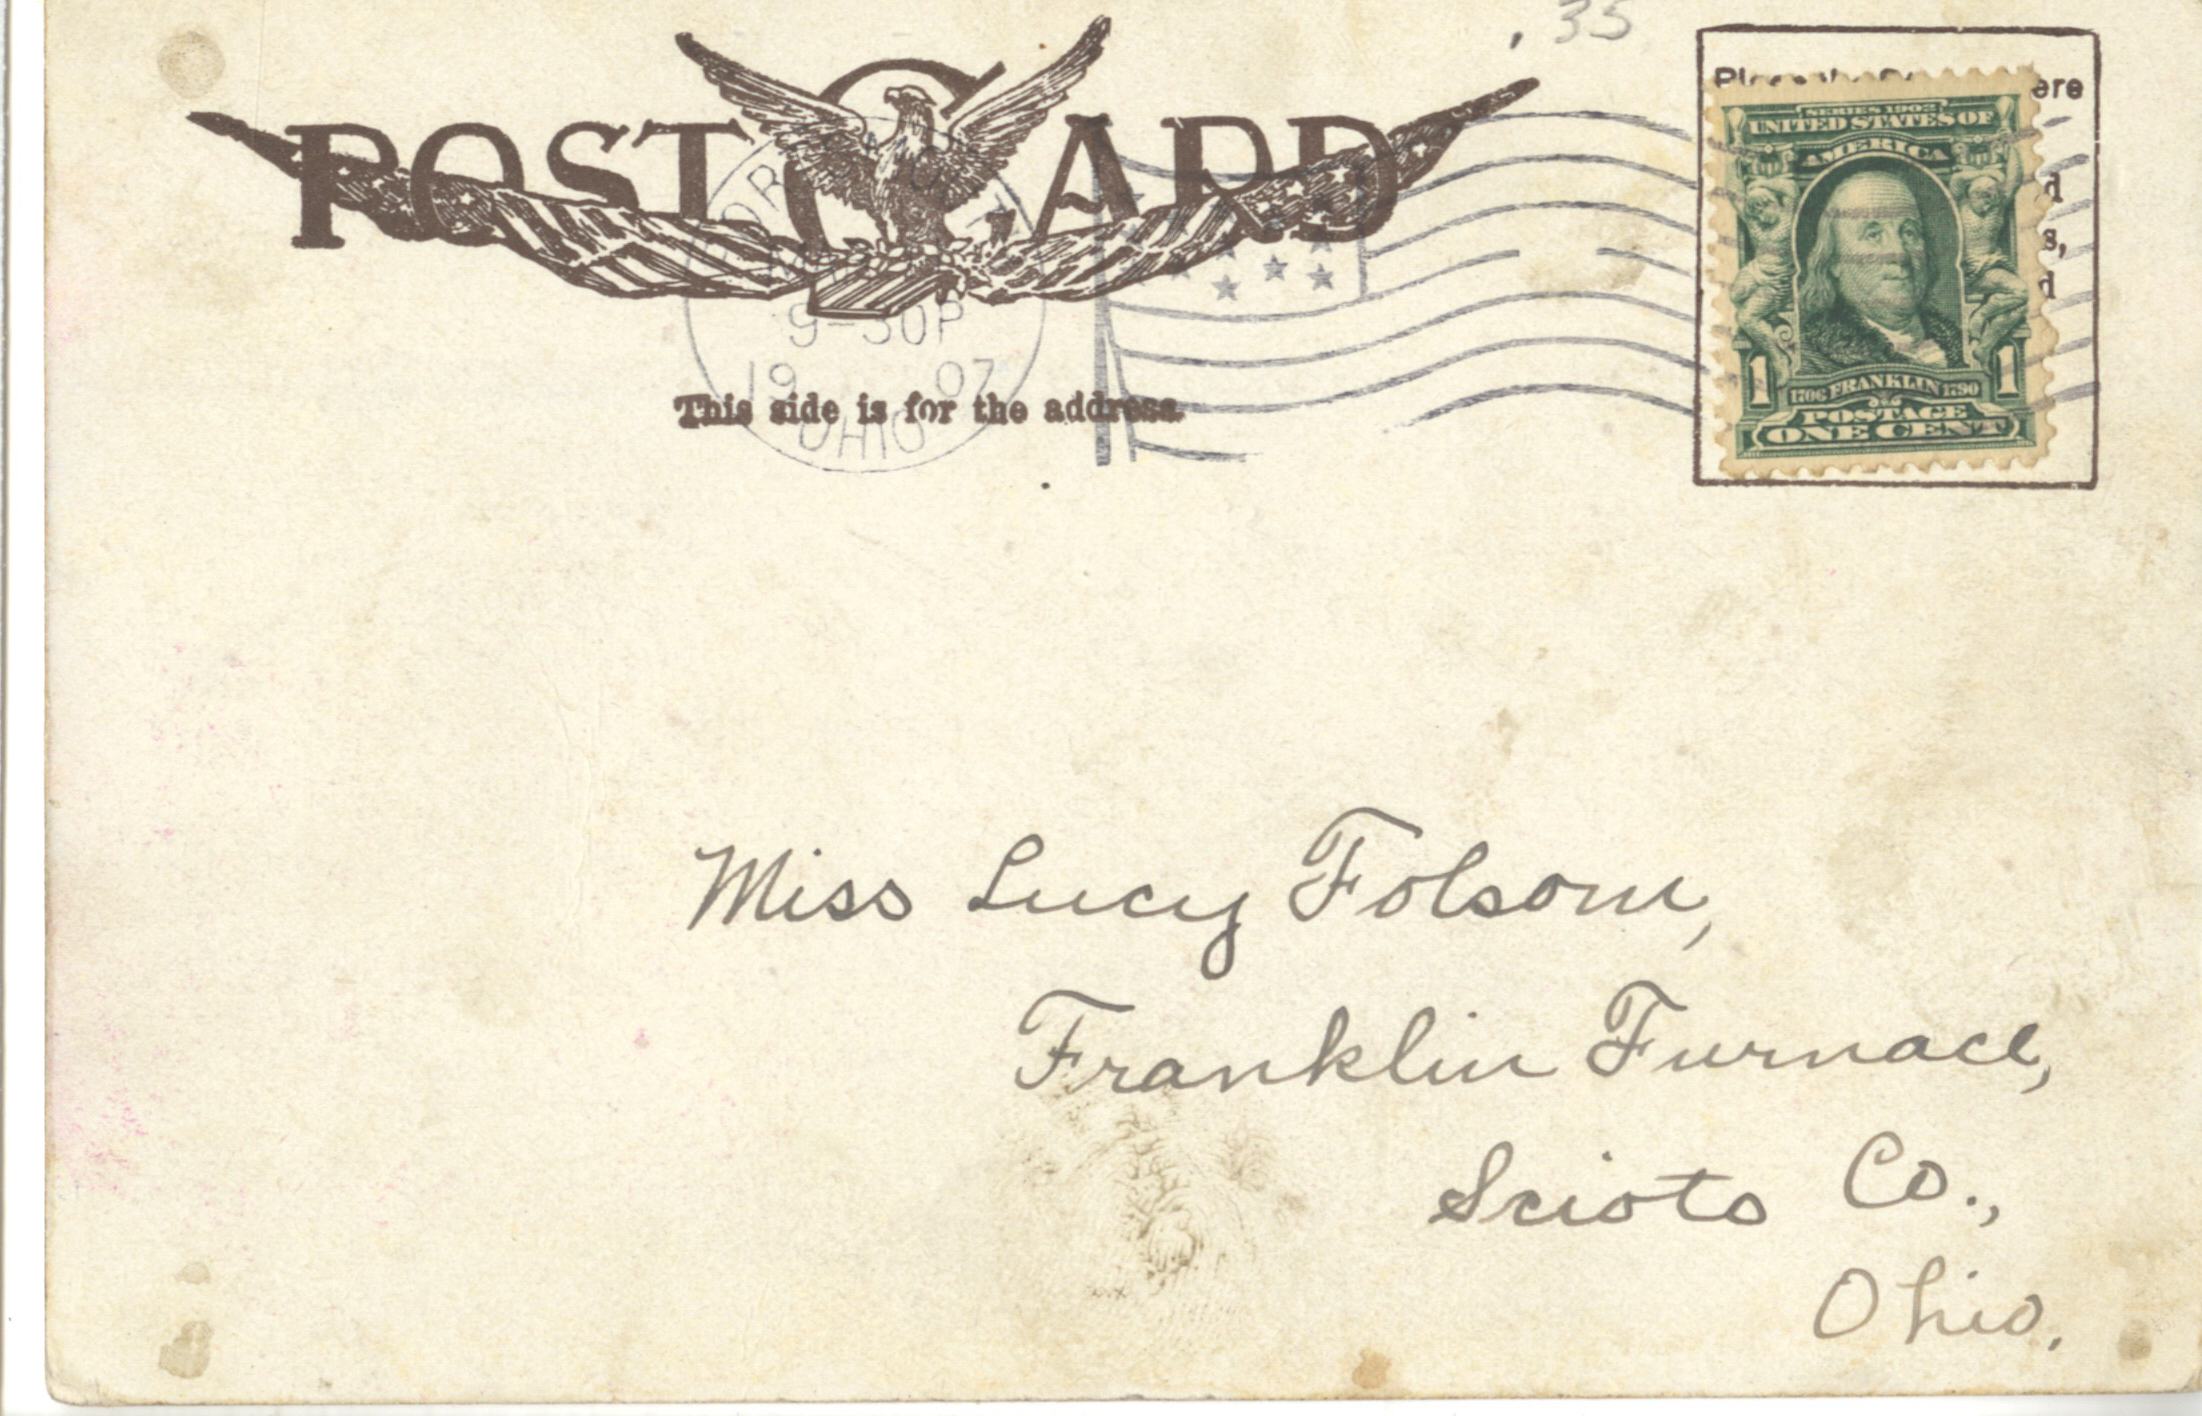 .35
POST CARD
SERIES 1902
UNITED STATES OF
AMERICA
1 1706 FRANKLIN 1790 1
POSTAGE
ONE CENT
9-30P
1907
OHIO
This side is for the address.
Miss Lucy Folsom,
Franklin Furnace,
Scioto Co.,
Ohio.